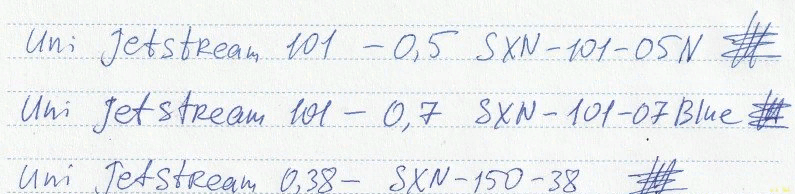 Uni Jetstream 101 - 0,5 SXN-101-05N
Uni Jetstream 101 - 0,7 SXN-101-07 Blue
Uni Jetstream 0,38- SXN-150-38